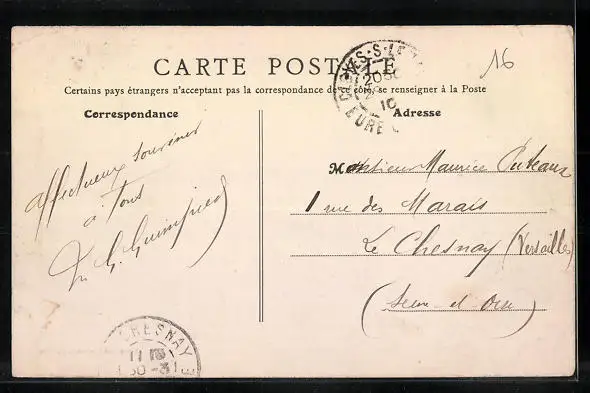 16
CARTE POSTALE
Certains pays étrangers n'acceptant pas la correspondance de ce côté, se renseigner à la Poste
Correspondance
Adresse
affectueux souvenir
à Tous
G.
Monsieur Maurice Puteaux
1 rue des Marais
Le Chesnay (Versailles)
(Seine-et-Oise)
20
10
EURE
CHESNAY